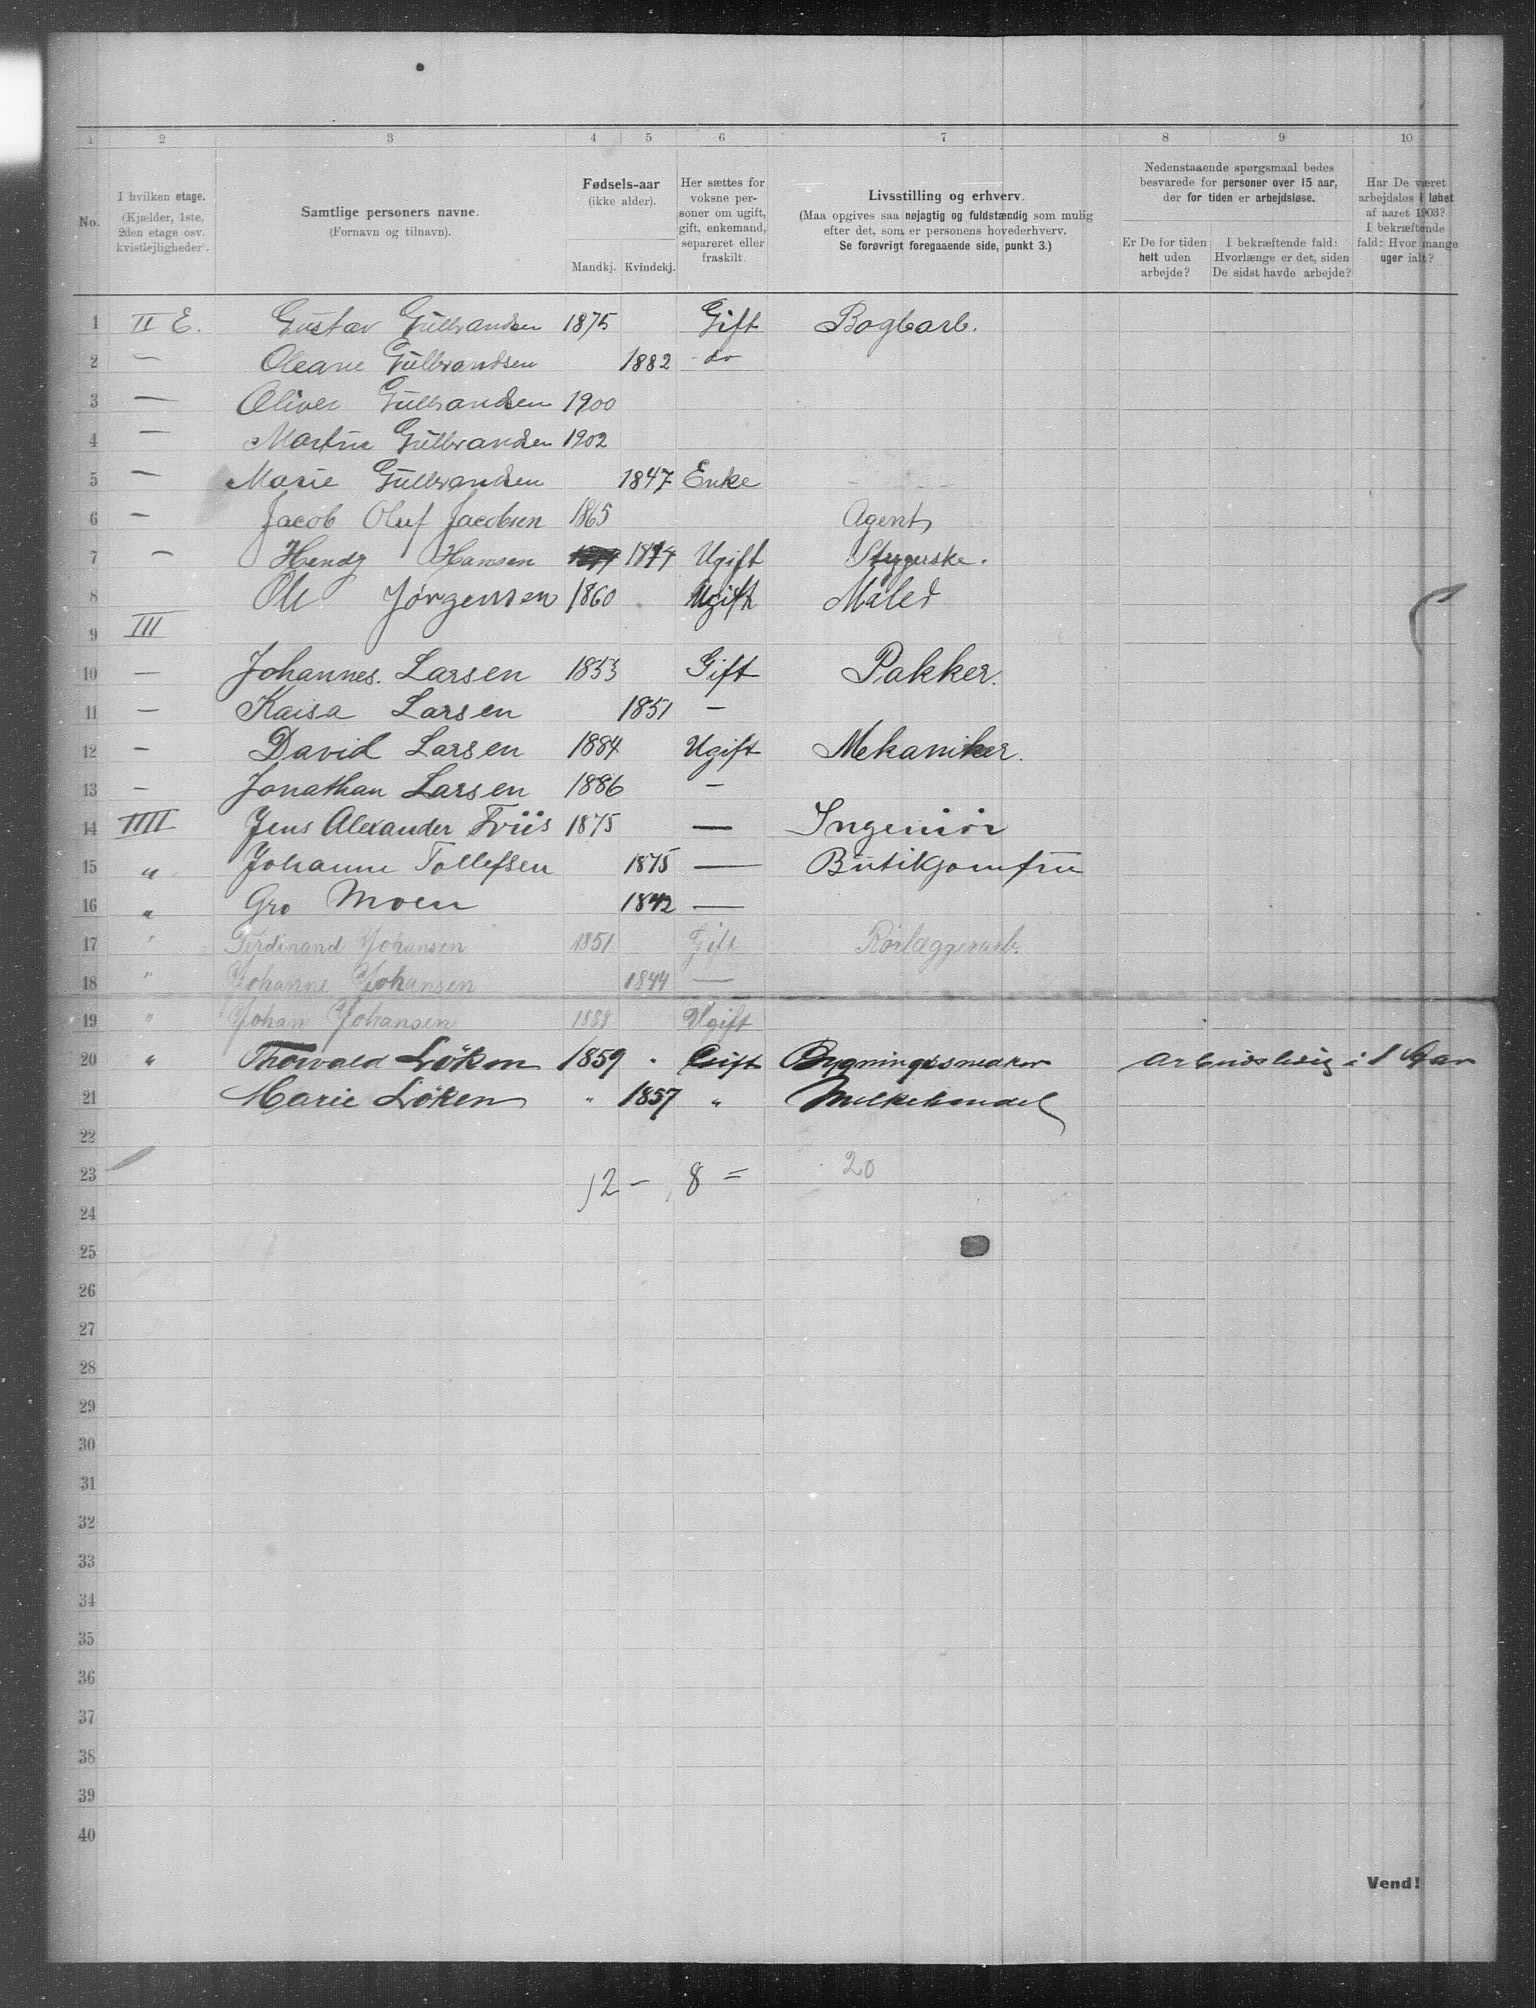 1 2 3 4 5 6 7 8 9 10
No.
I hvilken etage. (Kjælder, 1ste, 2den etage osv. kvistlejligheder).
Samtlige personers navne. (Fornavn og tilnavn).
Fødsels-aar (ikke alder). Mandkj. Kvindekj.
Her sættes for voksne personer om ugift, gift, enkemand, separeret eller fraskilt.
Livsstilling og erhverv. (Maa opgives saa nøjagtig og fuldstændig som mulig efter det, som er personens hovederhverv. Se forøvrigt foregaaende side, punkt 3.)
Nedenstaaende spørgsmaal bedes besvarede for personer over 15 aar, der for tiden er arbejdsløse.
Er De for tiden helt uden arbejde?
I bekræftende fald: Hvorlænge er det, siden De sidst havde arbejde?
Har De været arbejdsløs i løbet af aaret 1903? I bekræftende fald: Hvor mange uger ialt?
1 II E. Gustav Gulbrandsen 1875 Gift Bogbarb.
2 — Oleane Gulbrandsen 1882 do
3 — Oliver Gulbrandsen 1900
4 — Martin Gulbrandsen 1902
5 — Marie Gulbrandsen 1847 Enke
6 — Jacob Oluf Jacobsen 1865 Agent
7 — Hansen 1874 Ugift Strygerske.
8 Ole Jørgensen 1860 Ugift Maler
9 III
10 — Johannes. Larsen 1853 Gift Pakker.
11 — Kaisa Larsen 1851 —
12 — David Larsen 1884 Ugift Mekaniker.
13 — Jonathan Larsen 1886 —
14 IIII Jens Alexander Friis 1875 — Ingeniør
15 „ Johanne Tollefsen 1875 — Butikjomfru
16 „ Gro Moen 1842 —
17 " Ferdinand Johansen 1851 Gift Rørlæggerarb.
18 " Johanne Johansen 1844 —
19 " Johan Johansen 1888 Ugift
20 " Thorvald Löken 1859 " Gift Bygningssnedker arbeidsledig i 1 Aar
21 Marie Löken " 1857 " Melkehandel
22
23 12 — 8 = 20
24
25
26
27
28
29
30
31
32
33
34
35
36
37
38
39
40
Vend!